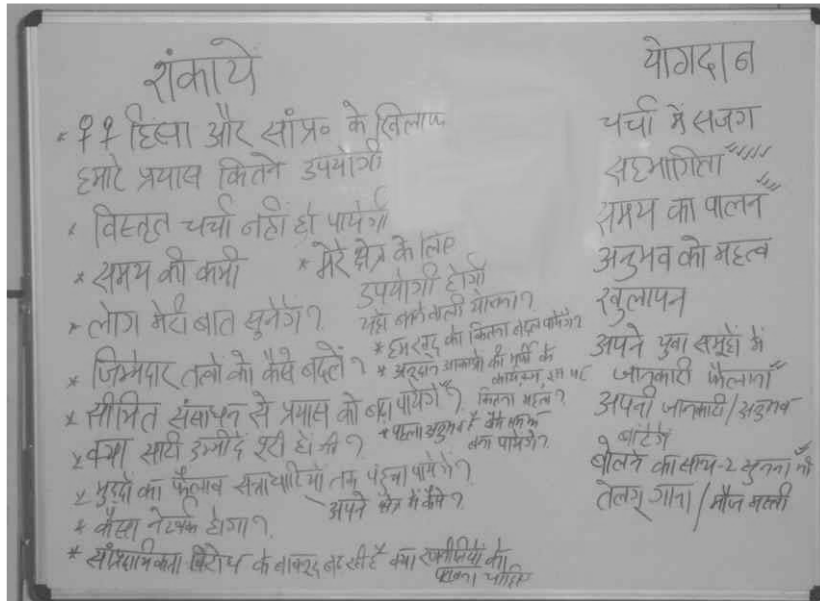 शंकायें
* ♀♀ हिंसा और सांप्र० के खिलाफ
हमारे प्रयास कितने उपयोगी
* विस्तृत चर्चा नहीं हो पायेगी
* समय की कमी
* मेरे क्षेत्र के लिए
उपयोगी होगी
* लोग मेरी बात सुनेगें?
* हम खुद को कितना बदल पायेंगे?
* जिम्मेदार तत्वों को कैसे बदलें?
* सीमित संसाधन से प्रयास को बढ़ा पायेगें?
* क्या सारी उम्मीदें पूरी होंगी?
* मुद्दों का फैलाव सत्ताधारियों तक पहुंचा पायेंगे?
अपने क्षेत्र में कैसे?
* कैसा नेटवर्क होगा?
* सांप्रदायिकता विरोध के बावजूद बढ़ रही है क्या रणनीतियों को
योगदान
चर्चा में सजग
सहभागिता
समय का पालन
अनुभव को महत्व
खुलापन
अपने युवा समूहों में
जानकारी फैलाना
अपनी जानकारी / अनुभव
बांटेगें
बोलने का साथ-२ सुनना भी
तेलगू गाना / मौज मस्ती